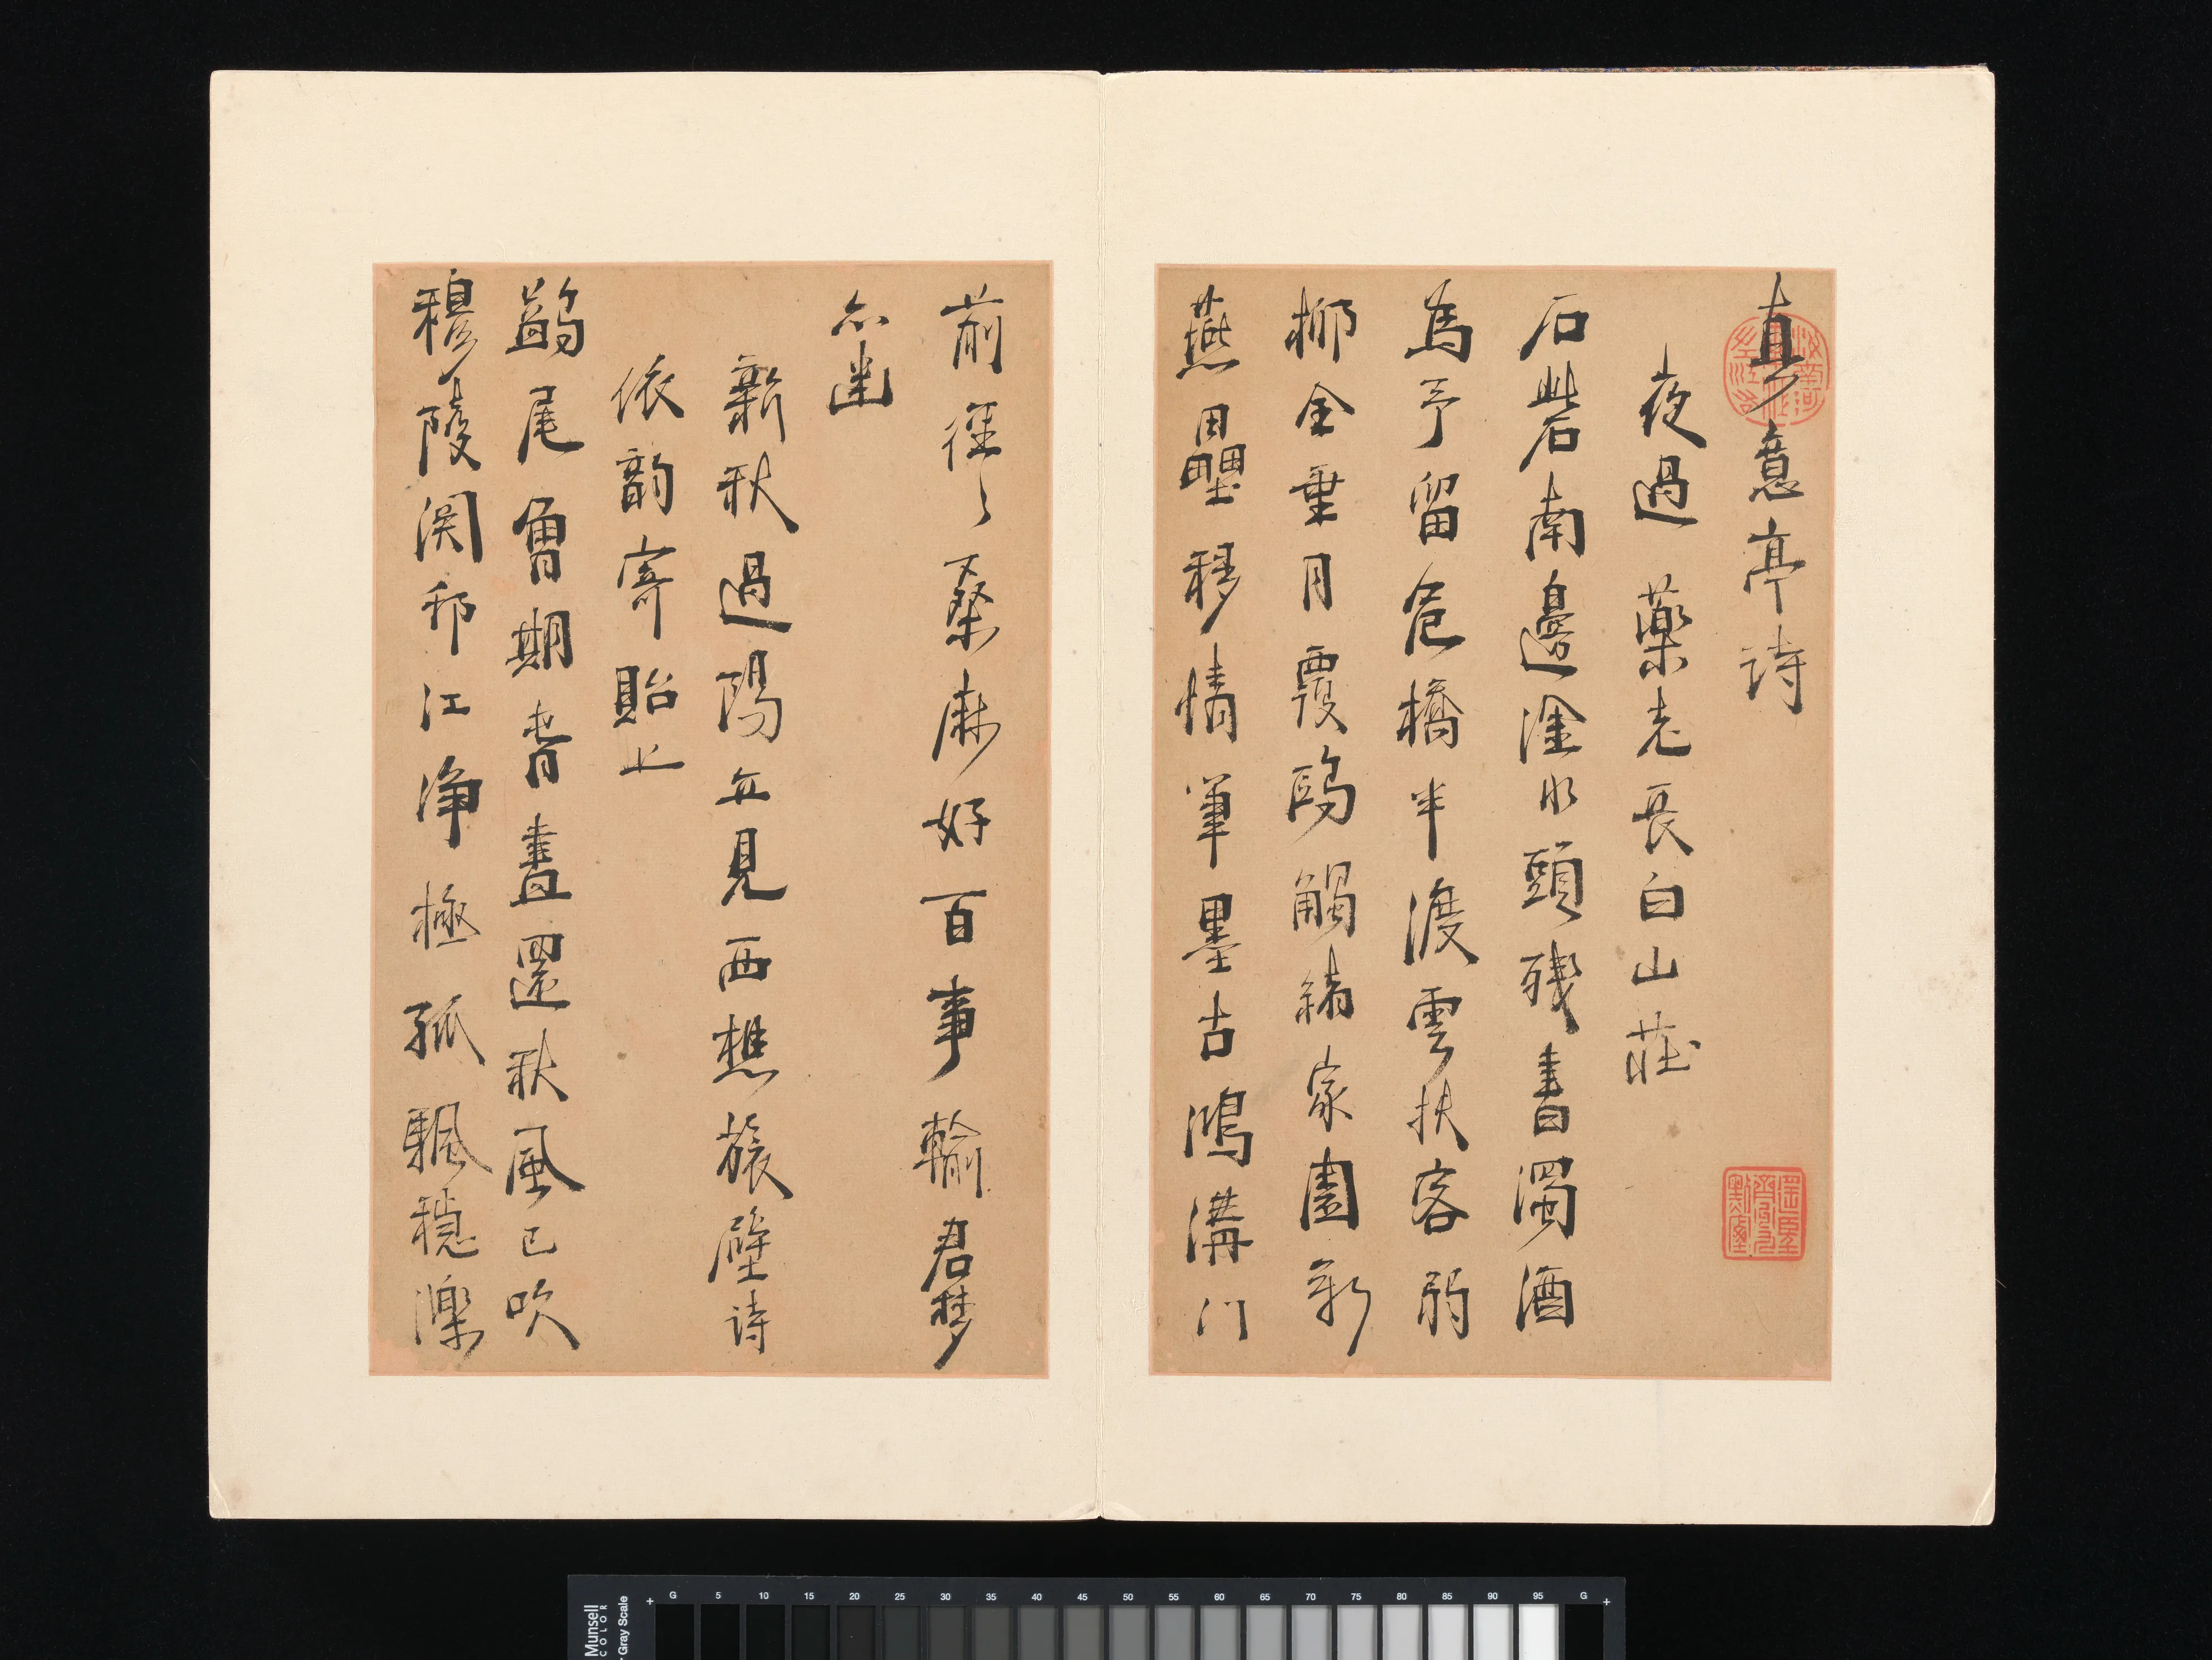 真意亭詩
夜過藥老長白山莊
石砦南邊淦水頭殘書濁酒
為予留危橋半渡雲扶客弱
柳全垂月覆鷗觸緒家園新
燕壘移情筆墨古鴻溝门
前徑〻桑麻好百事輸君夢
亦幽
新秋過陽立見西樵旅壁詩
依韵寄貽上
鷁尾曾期首晝還秋風已吹
穆陵関邗江净極孤颿穩濼
Munsell
COLOR
Gray Scale
G 5 10 15 20 25 30 35 40 45 50 55 60 65 70 75 80 85 90 95 G